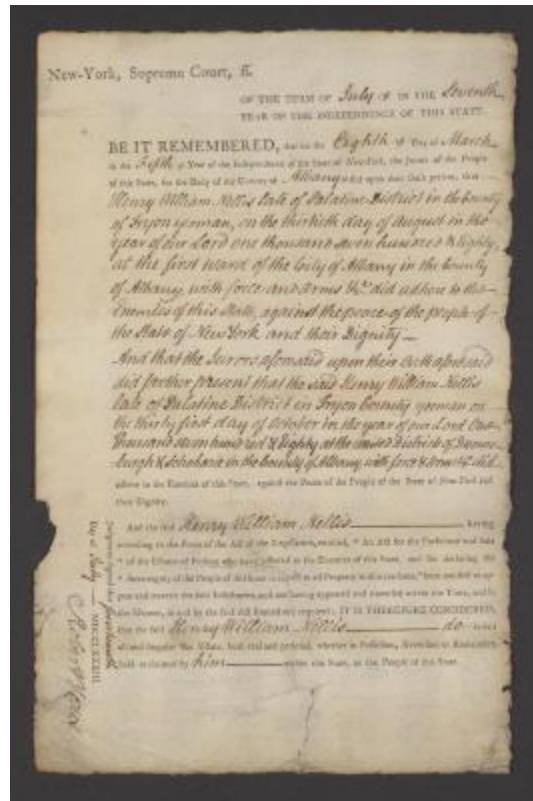 New-York, Supreme Court, ſſ.
OF THE TERM OF July IN THE Seventh
YEAR OF THE INDEPENDENCE OF THIS STATE.
BE IT REMEMBERED, that on the Eighth Day of March
in the Fifth Year of the Independence of the State of New-York, the Jurors of the People
of this State, for the Body of the County of Albany did upon their Oath present, that
Henry William Nellis late of Palatine District in the County
of Tryon yeoman, on the thirtieth day of August in the
year of our Lord one thousand seven hundred & Eighty,
at the first ward of the City of Albany in the County
of Albany with force and Arms &c. did adhere to the
Enemies of this State, against the peace of the people of
the State of New York and their Dignity —
And that the Jurors aforesaid upon their Oath aforesaid
did further present that the said Henry William Nellis
late of Palatine District in Tryon County yeoman on
the thirty first day of October in the year of our Lord One
thousand seven hundred & Eighty at the united Districts of
& Schoharie in the County of Albany, with force & Arms &c. did
adhere to the Enemies of this State, against the Peace of the People of the State of New-York and
their Dignity.
And the said Henry William Nellis having
according to the Form of the Act of the Legislature, entitled, "An Act for the Forfeiture and Sale
"of the Estates of Persons who have adhered to the Enemies of this State, and for declaring the
"Sovereignty of the People of this State in respect to all Property within the same," been notified to ap-
pear and traverse the said Indictment, and not having appeared and traversed within the Time, and in
the Manner, in and by the said Act limited and required; IT IS THEREFORE CONSIDERED,
that the said Henry William Nellis do
all and singular his Estate, both real and personal, whether in Possession, Reversion or Remainder,
held or claimed by him within this State, to the People of this State.
Judgment signed this
Day of July MDCCLXXXIII